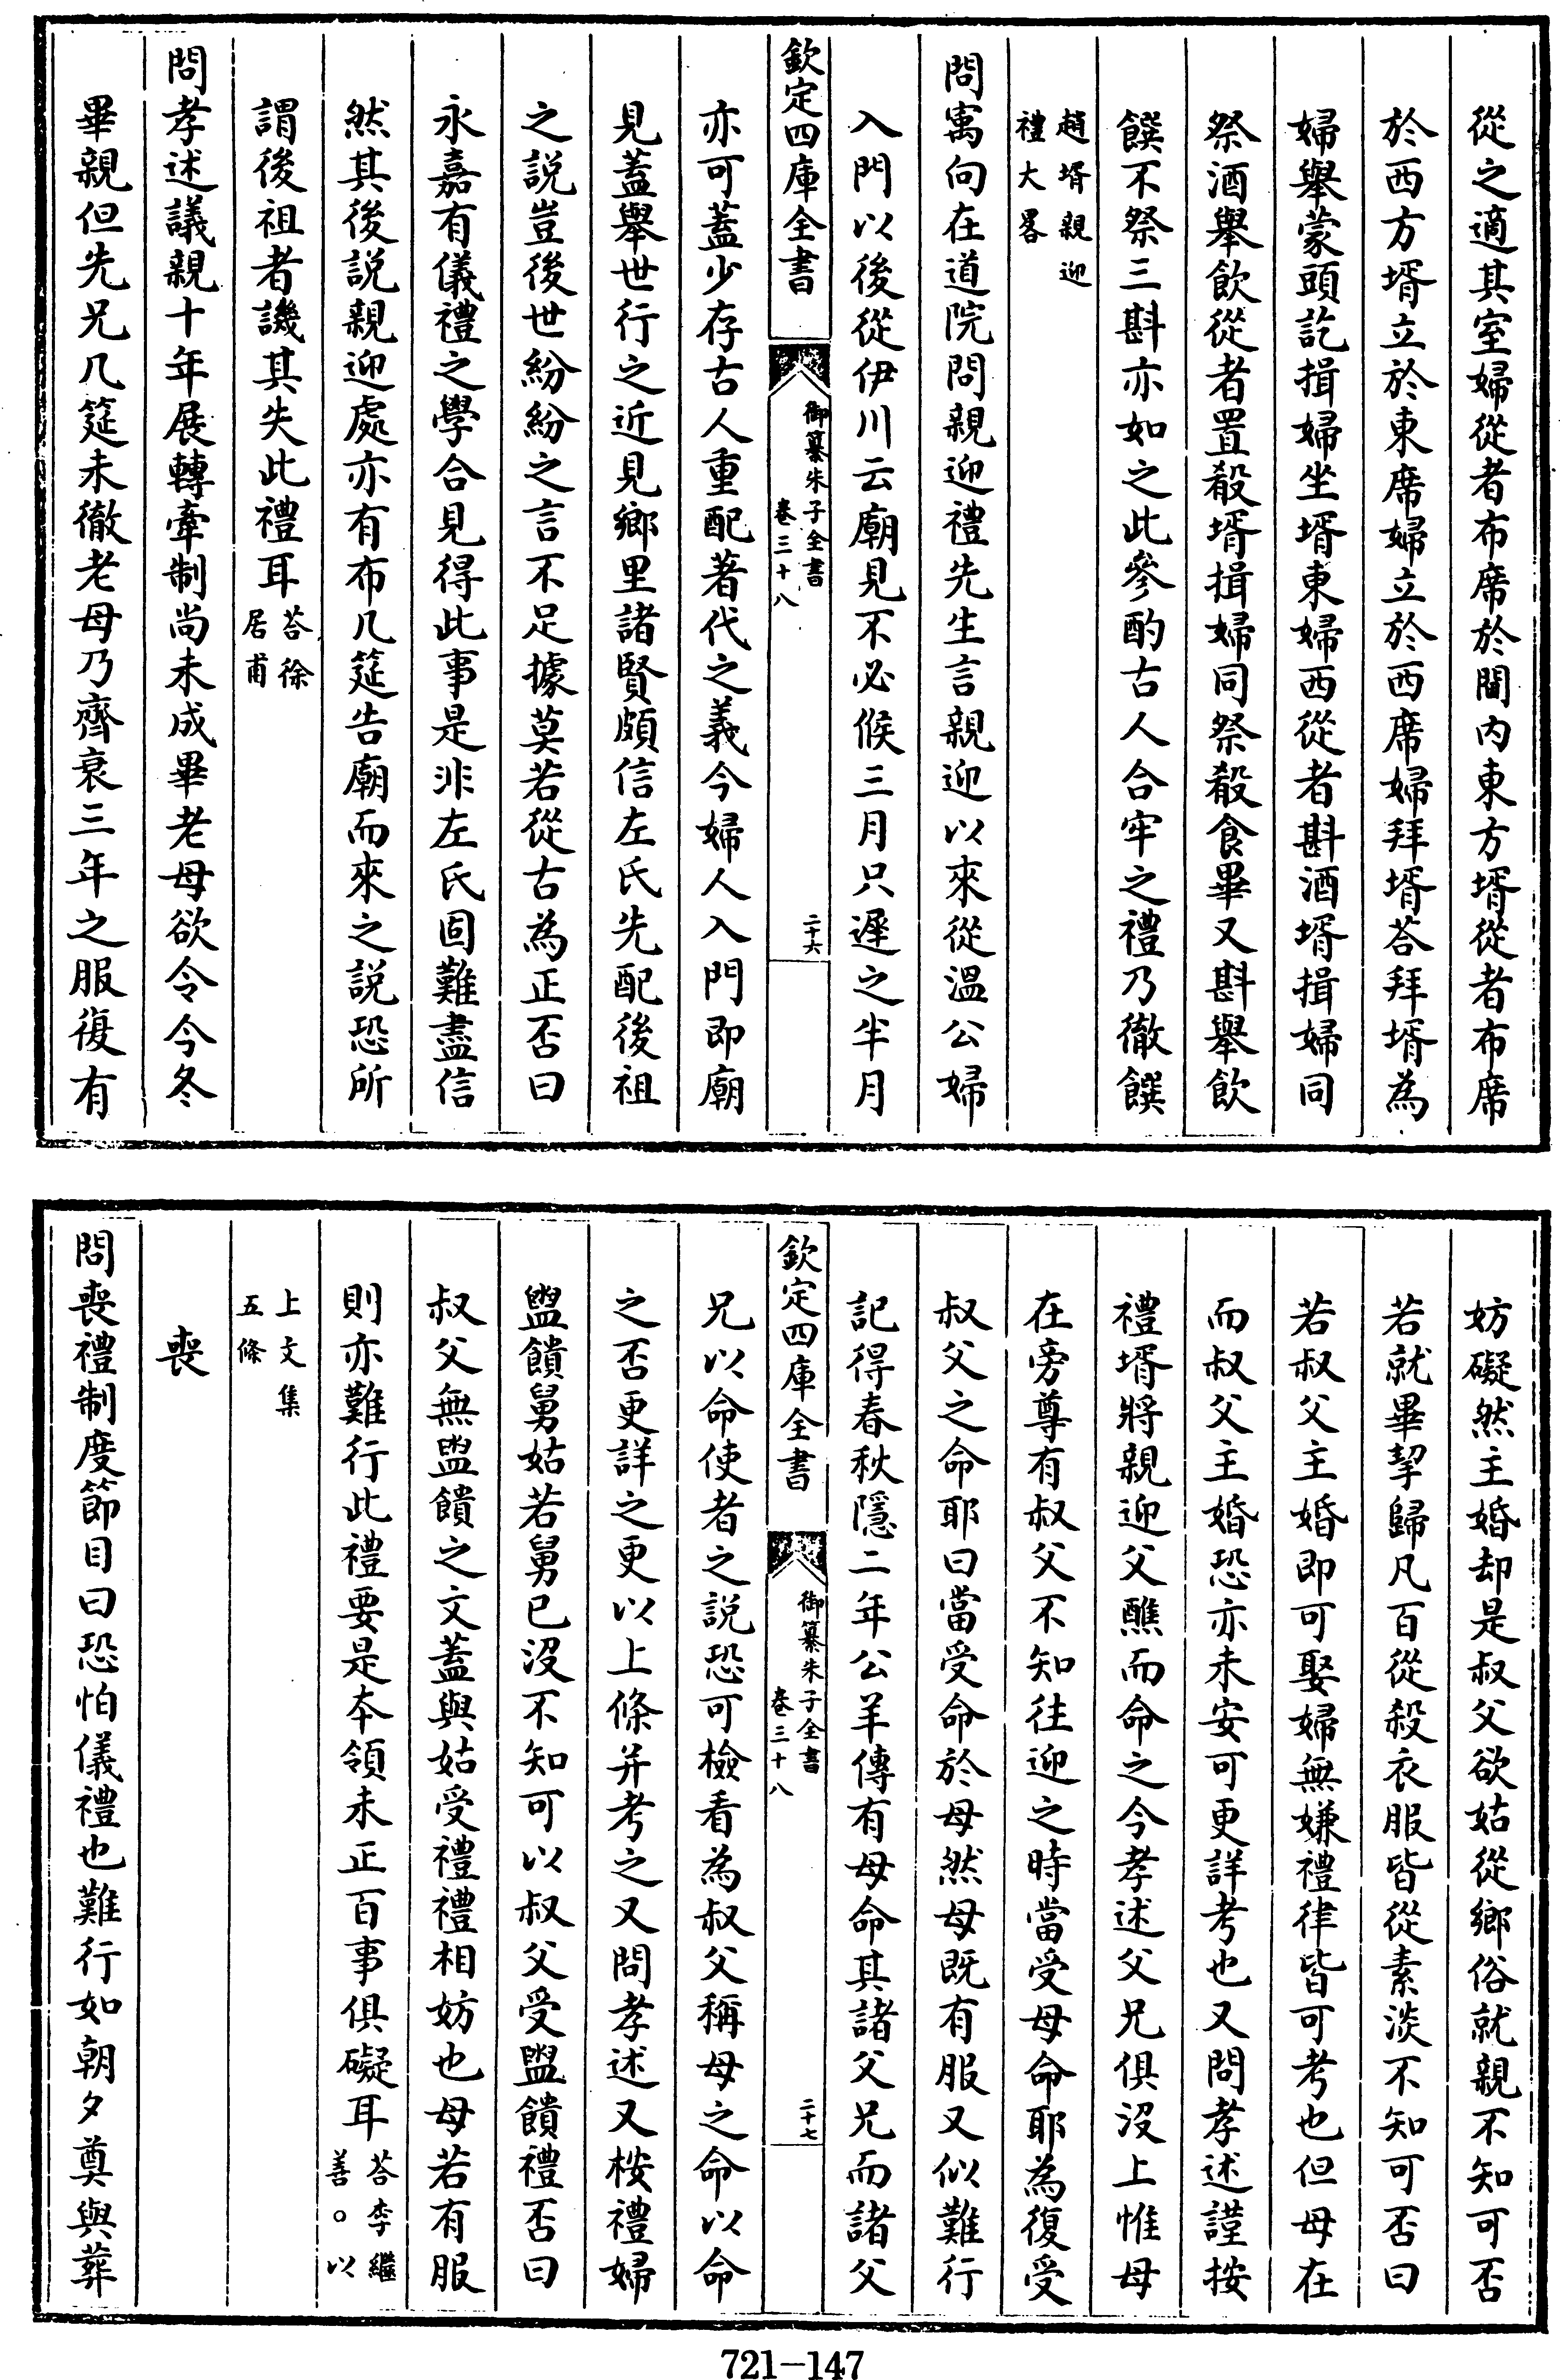 從之適其室婦從者布席於閫内東方壻從者布席
於西方壻立於東席婦立於西席婦拜壻荅拜壻為
婦舉蒙頭訖揖婦坐壻東婦西從者斟酒壻揖婦同
祭酒舉飲從者置殽壻揖婦同祭殽食畢又斟舉飲
饌不祭三斟亦如之此參酌古人合牢之禮乃徹饌
趙壻親迎
禮大畧
問寓向在道院問親迎禮先生言親迎以來從溫公婦
入門以後從伊川云廟見不必候三月只遲之半月
欽定四庫全書
御纂朱子全書
卷三十八
二十六
亦可蓋少存古人重配著代之義今婦人入門即廟
見蓋舉世行之近見鄉里諸賢頗信左氏先配後祖
之説豈後世紛紛之言不足據莫若從古為正否曰
永嘉有儀禮之學合見得此事是非左氏固難盡信
然其後説親迎處亦有布几筵告廟而來之説恐所
謂後祖者譏其失此禮耳
荅徐
居甫
問孝述議親十年展轉牽制尚未成畢老母欲令今冬
畢親但先兄几筵未徹老母乃齊衰三年之服復有
妨礙然主婚却是叔父欲姑從鄉俗就親不知可否
若就畢挈歸凡百從殺衣服皆從素淡不知可否曰
若叔父主婚即可娶婦無嫌禮律皆可考也但母在
而叔父主婚恐亦未安可更詳考也又問孝述謹按
禮壻將親迎父醮而命之今孝述父兄俱沒上惟母
在旁尊有叔父不知往迎之時當受母命耶為復受
叔父之命耶曰當受命於母然母既有服又似難行
記得春秋隱二年公羊傳有母命其諸父兄而諸父
欽定四庫全書
御纂朱子全書
卷三十八
二十七
兄以命使者之説恐可檢看為叔父稱母之命以命
之否更詳之更以上條并考之又問孝述又桉禮婦
盥饋舅姑若舅已沒不知可以叔父受盥饋禮否曰
叔父無盥饋之文蓋與姑受禮禮相妨也母若有服
則亦難行此禮要是本領未正百事俱礙耳
荅李繼
善○以
上文集
五條
喪
問喪禮制度節目曰恐怕儀禮也難行如朝夕奠與葬
721-147